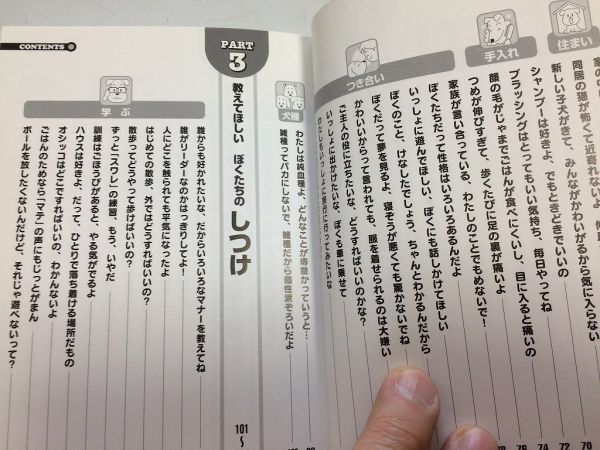 住まい
同居の猫が怖くて近寄れないよ、
新しい子犬がきて、みんながかわいがるから気に入らない
手入れ
シャンプーは好きよ、でもときどきでいいの
ブラッシングはとってもいい気持ち、毎日やってね
顔の毛がじゃまでごはんが食べにくいし、目に入ると痛いの
つめが伸びすぎて、歩くたびに足の裏が痛いよ
家族が言い合っている、わたしのことでもめないで！
つき合い
ぼくたちだって性格はいろいろあるんだよ
いっしょに遊んでほしい、ぼくにも話しかけてほしい
ぼくのこと、けなしたでしょう、ちゃんとわかるんだから
ぼくだって夢を見るよ、寝ぞうが悪くても驚かないでね
かわいいからって言われても、服を着せられるのは大嫌い
ご主人の役に立ちたいな、どうすればいいのかな？
いっしょに出かけたいな、ぼくも車に乗せて
わたしもいっしょに旅行に行ってみたいな
70
72
74
78
CONTENTS
犬種
わたしは純血種よ、どんなことが得意かっていうと…
雑種ってバカにしないで、雑種だから個性派ぞろいだよ
PART
3
教えてほしい ぼくたちの しつけ
101
〜
学ぶ
誰からも好かれたいな、だからいろいろなマナーを教えてね
誰がリーダーなのかはっきりしてよ！
人にどこを触られても平気になったよ
はじめての散歩、外ではどうすればいいの？
散歩ってどうやって歩けばいいの？
ずっと「スワレ」の練習、もう、いやだ
訓練はごほうびがあると、やる気がでるよ
ハウスは好きよ、だって、ひとりで落ち着ける場所だもの
オシッコはどこですればいいの、わかんないよ
ごはんのためなら「マテ」の声にもじっとがまん
ボールを放したくないんだけど、それじゃ遊べないって？